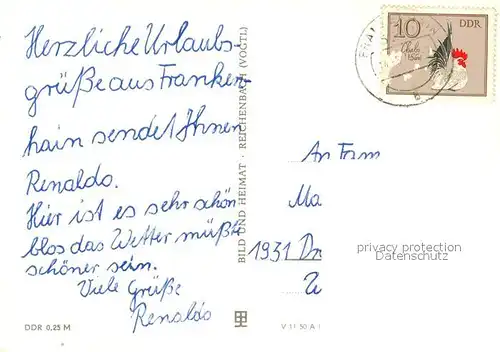 Herzliche Urlaubs-
grüße aus Franken-
hain sendet Ihnen
Renaldo.
Hier ist es sehr schön
blos das Wetter müßte
schöner sein.
Viele Grüße
Renaldo
DDR 0,25 M
BILD UND HEIMAT · REICHENBACH (VOGTL)
V 11 50 A 1
10
DDR
An Fam
Ma
1931 Dr
privacy protection
Datenschutz